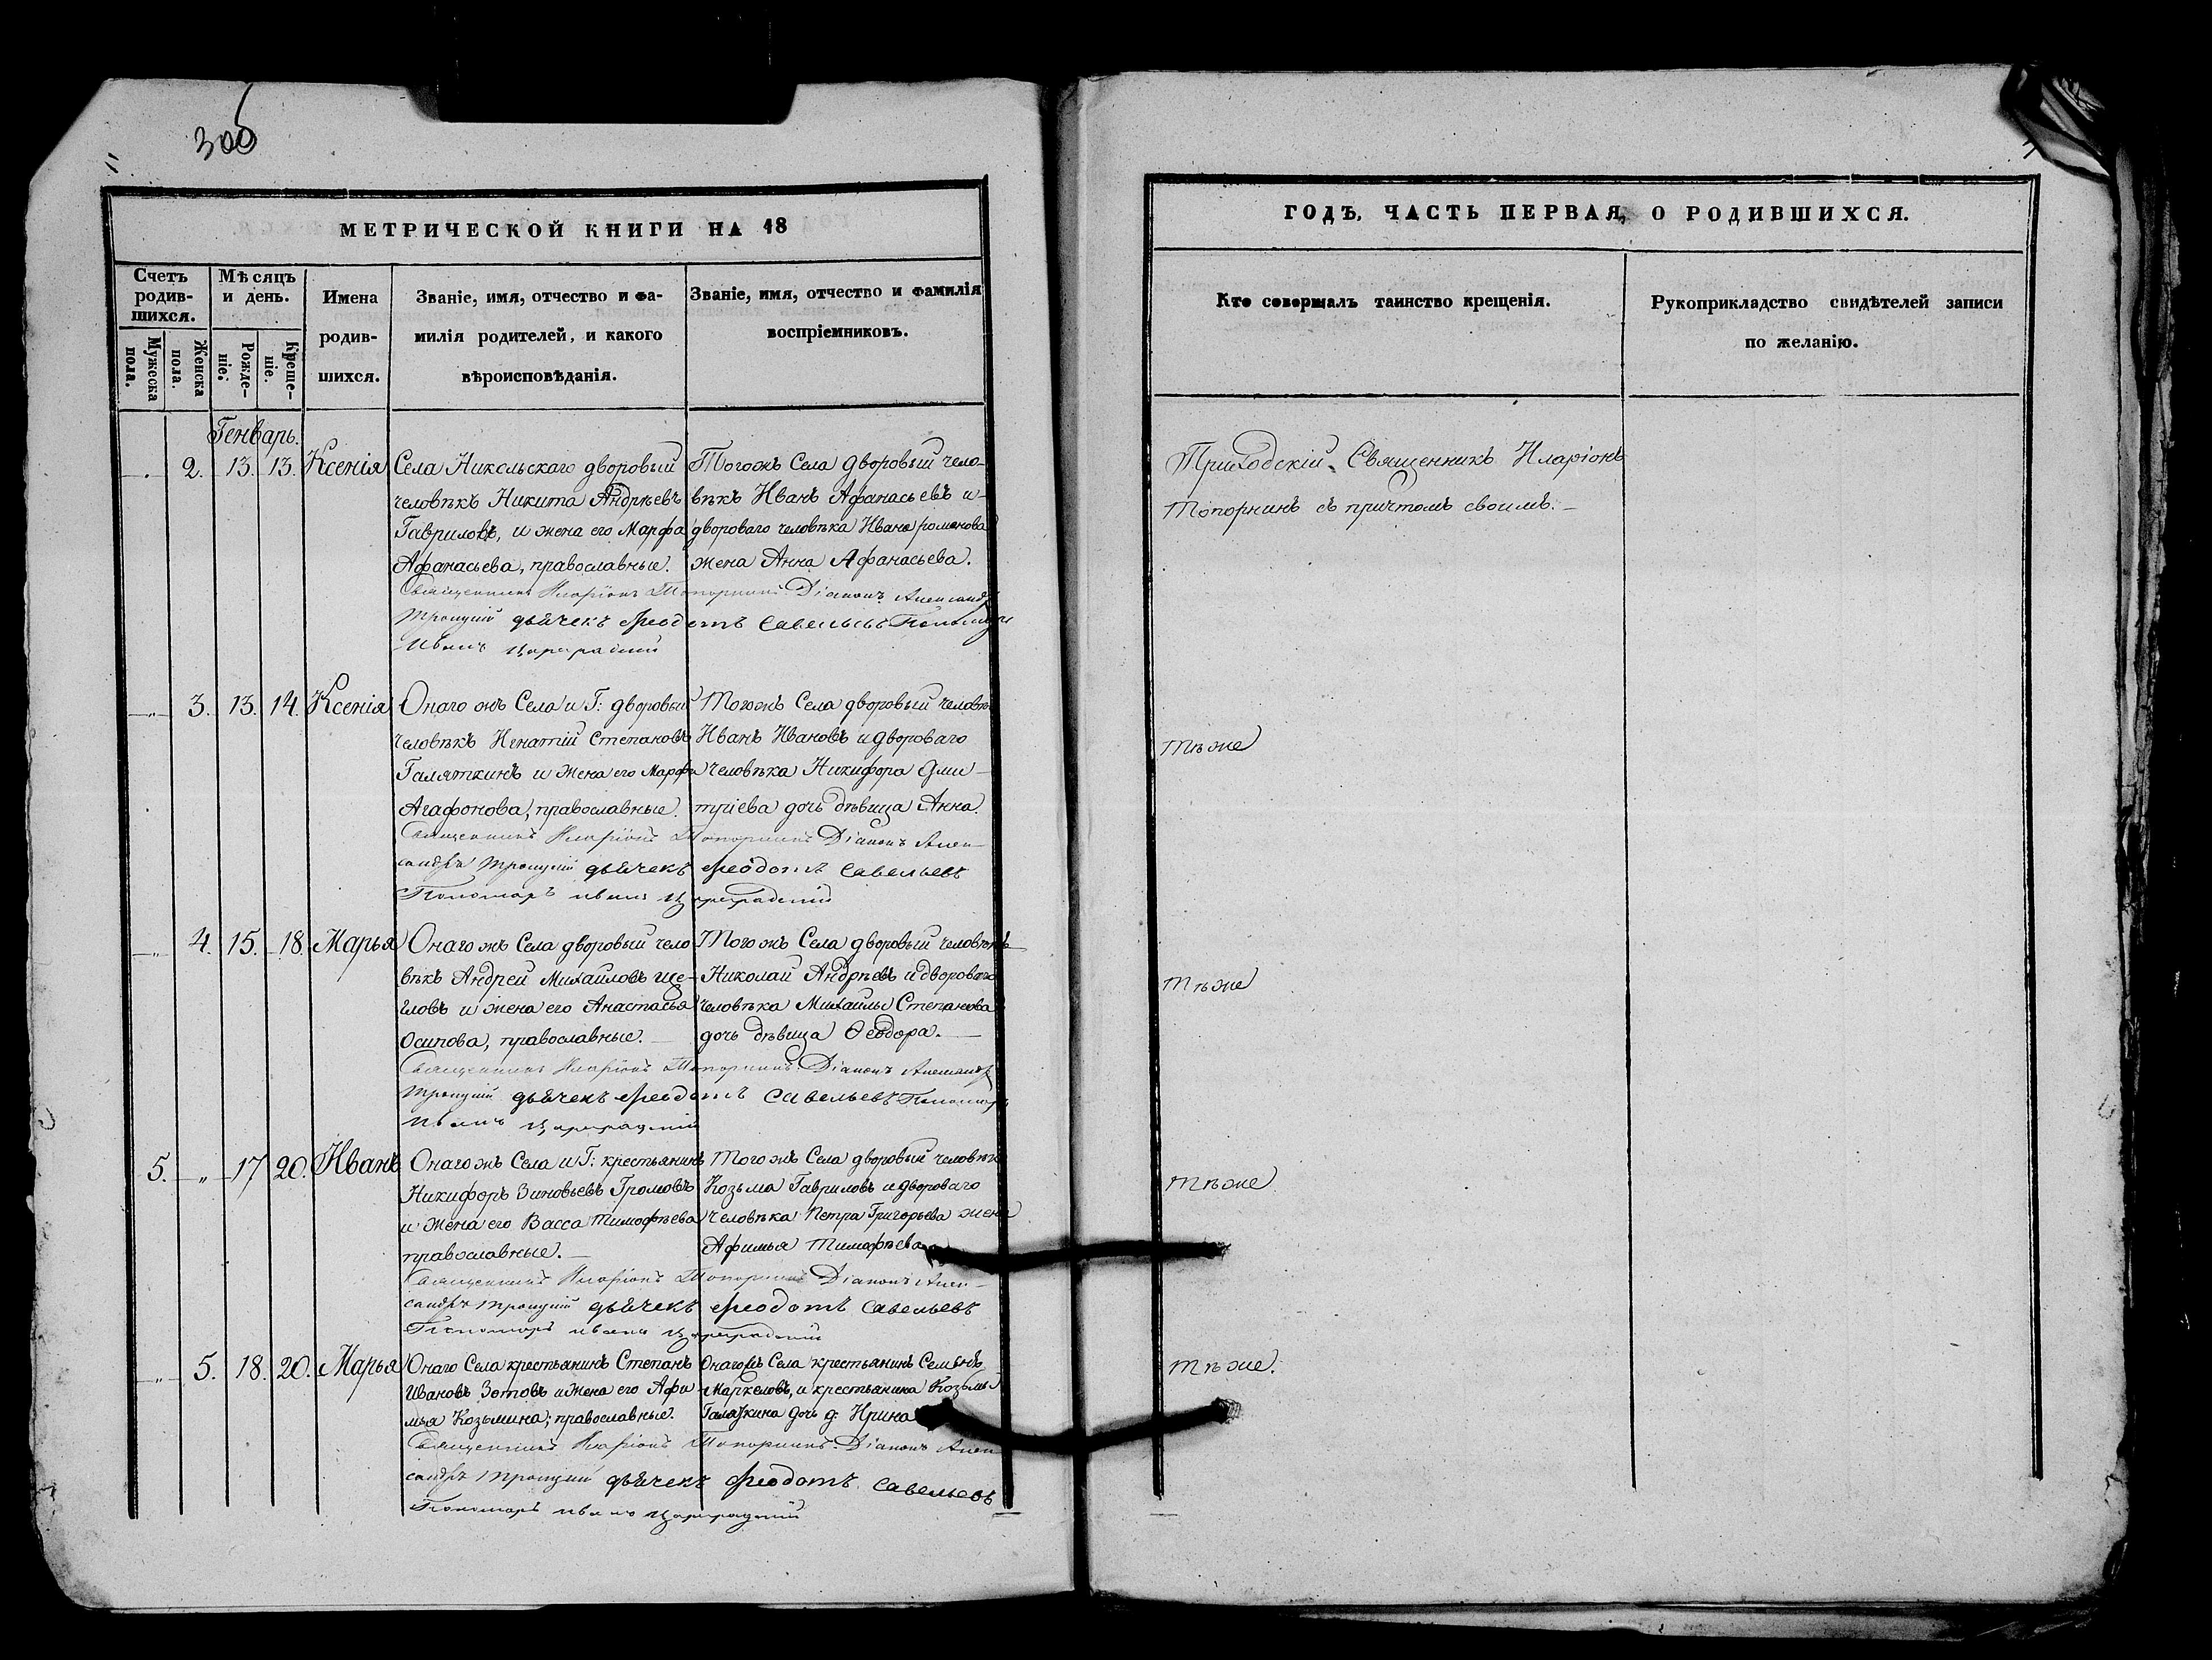 300
МЕТРИЧЕСКОЙ КНИГИ НА 18
Счетъ родив-шихся.
Мѣсяцъ и день.
Мужеска пола.
Женска пола.
Рожде-ніе.
Креще-ніе.
Имена родив-шихся.
Званіе, имя, отчество и фа-
милія родителей, и какого
вѣроисповѣданія.
Званіе, имя, отчество и фамилія
воспріемниковъ.
ГОДЪ, ЧАСТЬ ПЕРВАЯ, О РОДИВШИХСЯ.
Кто совершалъ таинство крещенія.
Рукоприкладство свидѣтелей записи
по желанію.
Генварь.
2. 13. 13. Ксенія
Села Никольскаго дворовый
человѣкъ Никита Андрѣевъ
Гавриловъ, и жена его Марфа
Афанасьева, православные.
Тогожъ Села дворовый чело-
вѣкъ Иванъ Афанасьевъ и
двороваго человѣка Ивана романова
жена Анна Афанасьева.
Приходскій Священникъ Иларіонъ
Топорнинъ съ причтомъ своимъ.
Священникъ Иларіонъ Топорнинъ Діаконъ Александръ
Троицкій дьячекъ Феодотъ Савельевъ Пономарь
Иванъ Цареградскій
3. 13. 14. Ксенія
Онаго жъ Села и Г: дворовый
человѣкъ Игнатій Степановъ
Галяткинъ и жена его Марфа
Агафонова, православные.
Тогожъ Села дворовый человѣкъ
Иванъ Ивановъ и двороваго
человѣка Никифора Дми-
тріева дочь дѣвица Анна.
Тѣже
Священникъ Иларіонъ Топорнинъ Діаконъ Алек-
сандръ Троицкій дьячекъ Феодотъ Савельевъ
Пономарь Иванъ Цареградскій
4. 15. 18. Марья
Онаго жъ Села дворовый чело
вѣкъ Андрей Михайловъ Ще-
гловъ и жена его Анастасья
Осипова, православные.
Тогожъ Села дворовый человѣкъ
Николай Андрѣевъ и двороваго
человѣка Михайлы Степанова
дочь дѣвица Ѳеодора.
Тѣже
Священникъ Иларіонъ Топорнинъ Діаконъ Александръ
Троицкій дьячекъ Феодотъ Савельевъ Пономарь
Иванъ Цареградскій
5. 17 20. Иванъ
Онаго жъ Села и Г: крестьянинъ
Никифоръ Зиновьевъ Громовъ
и жена его Васса Тимофѣева
православные.
Тогожъ Села дворовый человѣкъ
Козьма Гавриловъ и двороваго
человѣка Петра Григорьева жена
Афимья Тимофѣева
Тѣже
Священникъ Иларіонъ Топорнинъ Діаконъ Алек-
сандръ Троицкій дьячекъ Феодотъ Савельевъ
Пономарь Иванъ Цареградскій
5. 18. 20. Марья
Онаго Села крестьянинъ Степанъ
Ивановъ Зотовъ и жена его Афи
мья Козьмина, православные.
Онагожъ Села крестьянинъ Семенъ
Маркеловъ, и крестьянина Козьмы
дочь д: Ирина
Тѣже.
Священникъ Иларіонъ Топорнинъ Діаконъ Алек-
сандръ Троицкій дьячекъ Феодотъ Савельевъ
Пономарь Иванъ Цареградскій